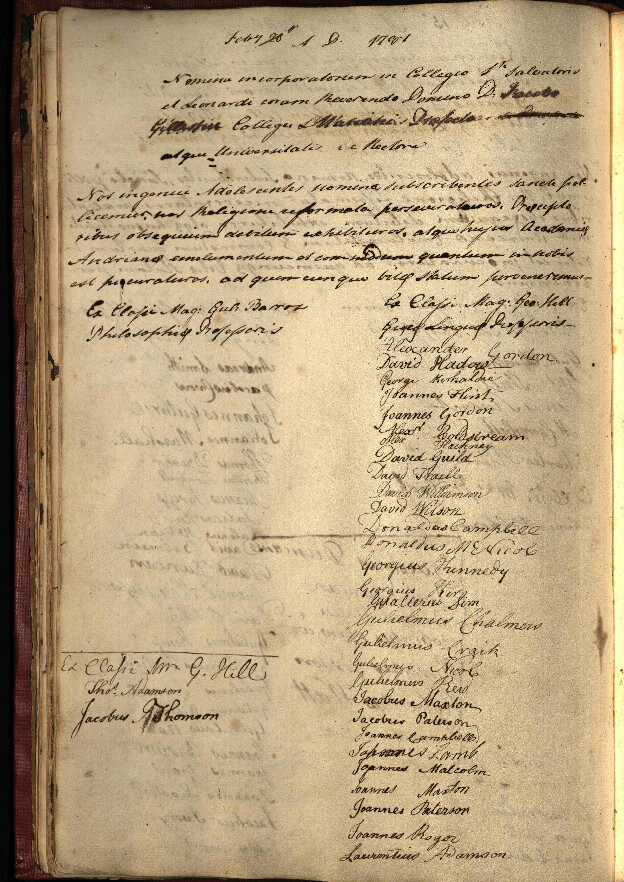 Feby 28th A D. 1781
Nomina incorporatorum in Collegio Sti Salvatoris
et Leonardi coram Reverendo Domino D. Jacobo
Gillespie Collegii D Mariani Prefecto
atque Universitatis Rectore
Nos ingenui Adolescentes nomina subscribentes sancte pol-
licemur, nos Religione reformata perseveraturos. Precepto
ribus obsequium debitum exhibituros, atque hujus Academiæ
Andrianæ emolumentum et commodum quantum in nobis
est procuraturos, ad quemcunque vitæ statum pervenerimus
Ex Classi Mag: Gul: Barron
Philosophiæ Professoris
Ex Classi Mag: Geo: Hill
Græcæ Linguæ Professoris
Alexander Gordon
David Hadow
George Kirkaldie
Joannes Flint
Joannes Gordon
Alexr Coldstream
Alexr Hackney
David Guild
David Traill
David Williamson
David Wilson
Donaldus Campbell
Donaldus McNicol
Georgius Kennedy
Georgius
Gualterus Sim
Gulielmus Chalmers
Gulielmus Craik
Gulielmus Nicol
Gulielmus Reid
Jacobus Maxton
Jacobus Paterson
Joannes Campbell
Joannes Lamb
Joannes Malcolm
Joannes Maxton
Joannes Paterson
Joannes Roger
Laurentius Adamson
Ex Classi Mri G. Hill
Thos. Adamson
Jacobus Thomson